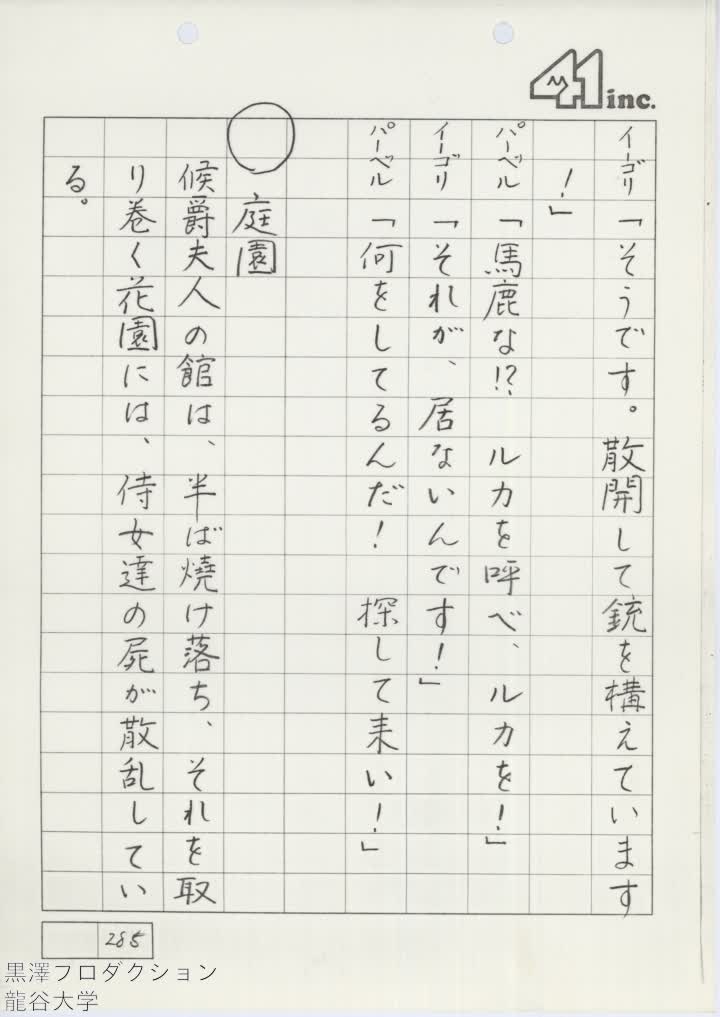 41 inc.
イーゴリ「そうです。散開して銃を構えています
！」
パーベル「馬鹿な!?　ルカを呼べ、ルカを！」
イーゴリ「それが、居ないんです！」
パーベル「何をしてるんだ！　探して来い！」
○　庭園
侯爵夫人の館は、半ば焼け落ち、それを取
り巻く花園には、侍女達の屍が散乱してい
る。
285
黒澤プロダクション
龍谷大学